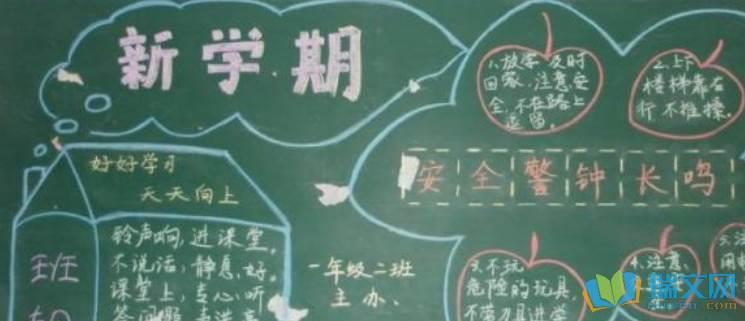 新学期
好好学习
天天向上
铃声响，进课堂。
不说话，静息好。
课堂上，专心听
班
一年级二班
主办
1、放学及时
回家，注意安
全，不在路上
逗留。
2、上下
楼梯靠右
行不推搡。
安全警钟长鸣
3、不玩
危险的玩具，
不带刀具进学
4、注意
瑞文网